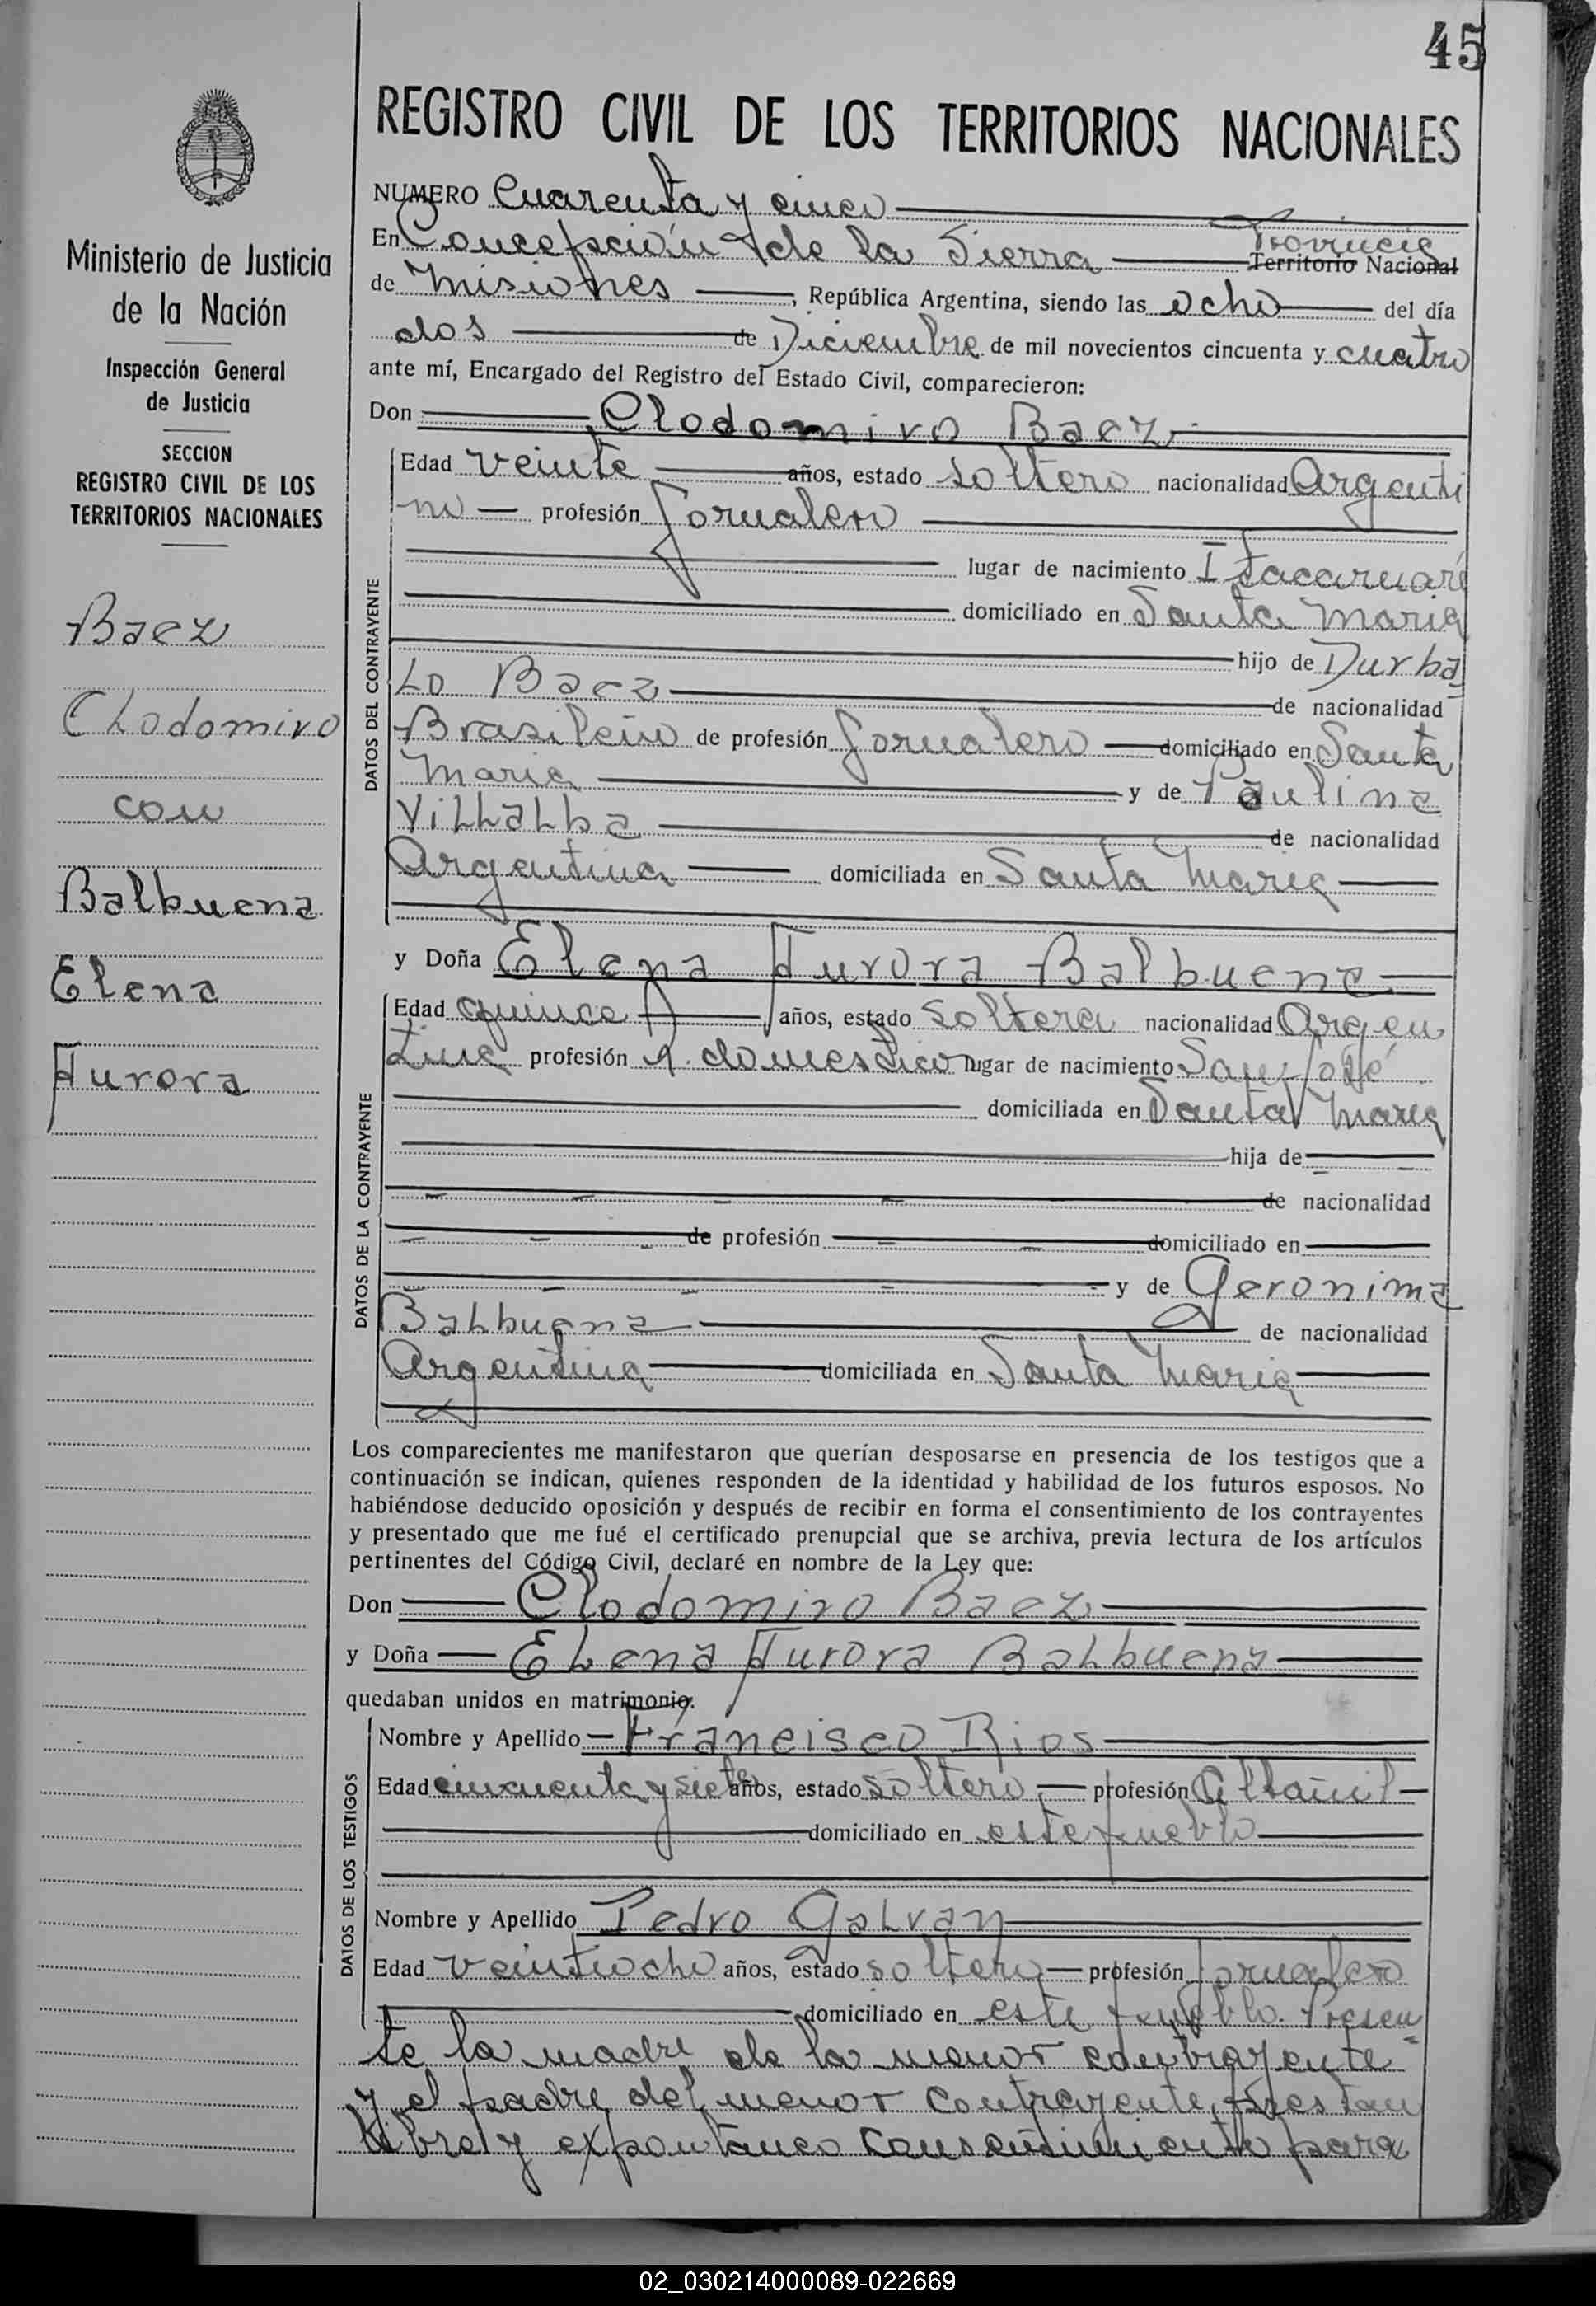 45
REGISTRO CIVIL DE LOS TERRITORIOS NACIONALES
Ministerio de Justicia
de la Nación
Inspección General
de Justicia
SECCION
REGISTRO CIVIL DE LOS
TERRITORIOS NACIONALES
Baez
Clodomiro
con
Balbuena
Elena
Aurora
NUMERO Cuarenta y cinco
Provincia
En Concepción de la Sierra Territorio Nacional
de Misiones, República Argentina, siendo las ocho del día
dos de Diciembre de mil novecientos cincuenta y cuatro
ante mí, Encargado del Registro del Estado Civil, comparecieron:
Don Clodomiro Baez
DATOS DEL CONTRAYENTE
Edad veinte años, estado soltero nacionalidad Argenti
no profesión Jornalero
lugar de nacimiento Itacaruaré
domiciliado en Santa Maria
hijo de Durba
Lo Baez de nacionalidad
Brasileño de profesión Jornalero domiciliado en Santa
Maria y de Paulina
Villalba de nacionalidad
Argentina domiciliada en Santa Maria
y Doña Elena Aurora Balbuena
DATOS DE LA CONTRAYENTE
Edad quince años, estado soltera nacionalidad Argen
tina profesión q. domestico lugar de nacimiento San José
domiciliada en Santa Maria
hija de
de nacionalidad
de profesión domiciliado en
y de Geronima
Balbuena de nacionalidad
Argentina domiciliada en Santa Maria
Los comparecientes me manifestaron que querían desposarse en presencia de los testigos que a
continuación se indican, quienes responden de la identidad y habilidad de los futuros esposos. No
habiéndose deducido oposición y después de recibir en forma el consentimiento de los contrayentes
y presentado que me fué el certificado prenupcial que se archiva, previa lectura de los artículos
pertinentes del Código Civil, declaré en nombre de la Ley que:
Don Clodomiro Baez
y Doña Elena Aurora Balbuena
quedaban unidos en matrimonio.
DATOS DE LOS TESTIGOS
Nombre y Apellido Francisco Rios
Edad cincuenta y siete años, estado soltero profesión Albañil
domiciliado en este pueblo
Nombre y Apellido Pedro Galvan
Edad veintiocho años, estado soltero profesión Jornalero
domiciliado en este pueblo. Presen
te la madre de la menor contrayente
y el padre del menor contrayente, prestan
libre y expontaneo consentimiento para
02_030214000089-022669